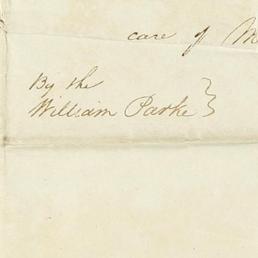 care of M
By the
William Parke }